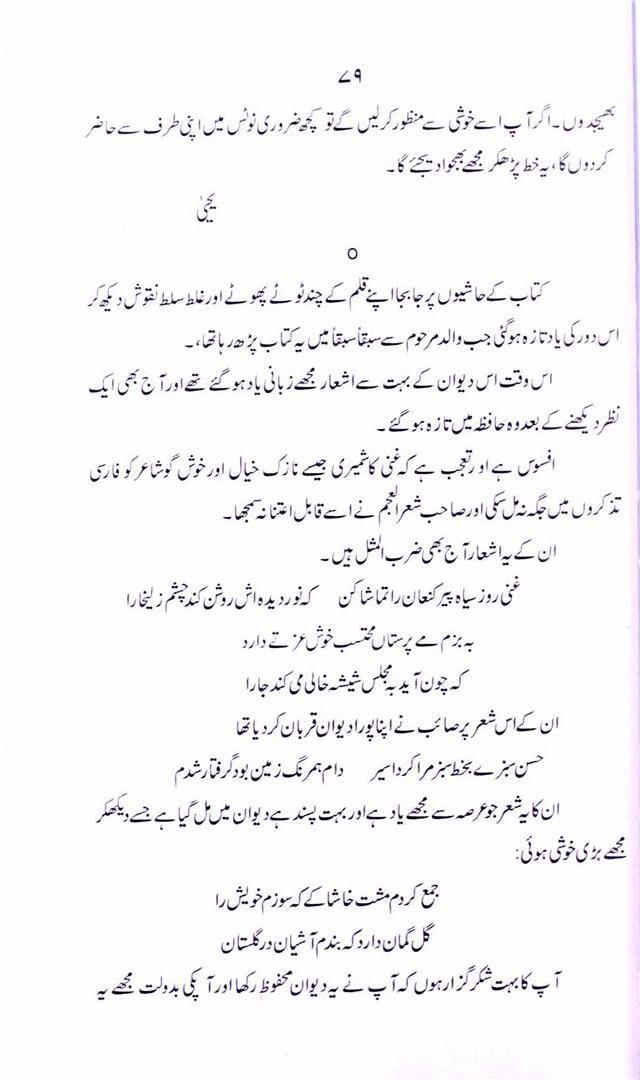 ۷۹
بھیجدوں۔ اگر آپ اسے خوشی سے منظور کرلیں گے تو کچھ ضروری نوٹس میں اپنی طرف سے حاضر
کردوں گا، یہ خط پڑھکر مجھے بھجوا دیجئے گا۔
یحییٰ
o
کتاب کے حاشیوں پر جابجا اپنے قلم کے چند ٹوٹے پھوٹے اور غلط سلط نقوش دیکھ کر
اس دور کی یاد تازہ ہوگئی جب والد مرحوم سے سبقاً سبقاً میں یہ کتاب پڑھ رہا تھا،۔
اس وقت اس دیوان کے بہت سے اشعار مجھے زبانی یاد ہوگئے تھے اور آج بھی ایک
نظر دیکھنے کے بعد وہ حافظہ میں تازہ ہوگئے۔
افسوس ہے اور تعجب ہے کہ غنی کاشمیری جیسے نازک خیال اور خوش گو شاعر کو فارسی
تذکروں میں جگہ نہ مل سکی اور صاحب شعر العجم نے اسے قابل اعتنا نہ سمجھا۔
ان کے یہ اشعار آج بھی ضرب المثل ہیں۔
غنی روز سیاہ پیر کنعان را تماشا کن کہ نور دیدہ اش روشن کند چشم زلیخا را
بہ بزم مے پرستاں محتسب خوش عزتے دارد
کہ چون آید بہ مجلس شیشہ خالی می کند جا را
ان کے اس شعر پر صائب نے اپنا پورا دیوان قربان کردیا تھا
حسن سبزے بخط سبز مرا کرد اسیر دام ہمرنگ زمین بود گرفتار شدم
ان کا یہ شعر جو عرصہ سے مجھے یاد ہے اور بہت پسند ہے دیوان میں مل گیا ہے جسے دیکھکر
مجھے بڑی خوشی ہوئی:
جمع کردم مشت خاشاکے کہ سوزم خویش را
گل گمان دارد کہ بندم آشیان در گلستان
آپ کا بہت شکر گزار ہوں کہ آپ نے یہ دیوان محفوظ رکھا اور آپکی بدولت مجھے یہ